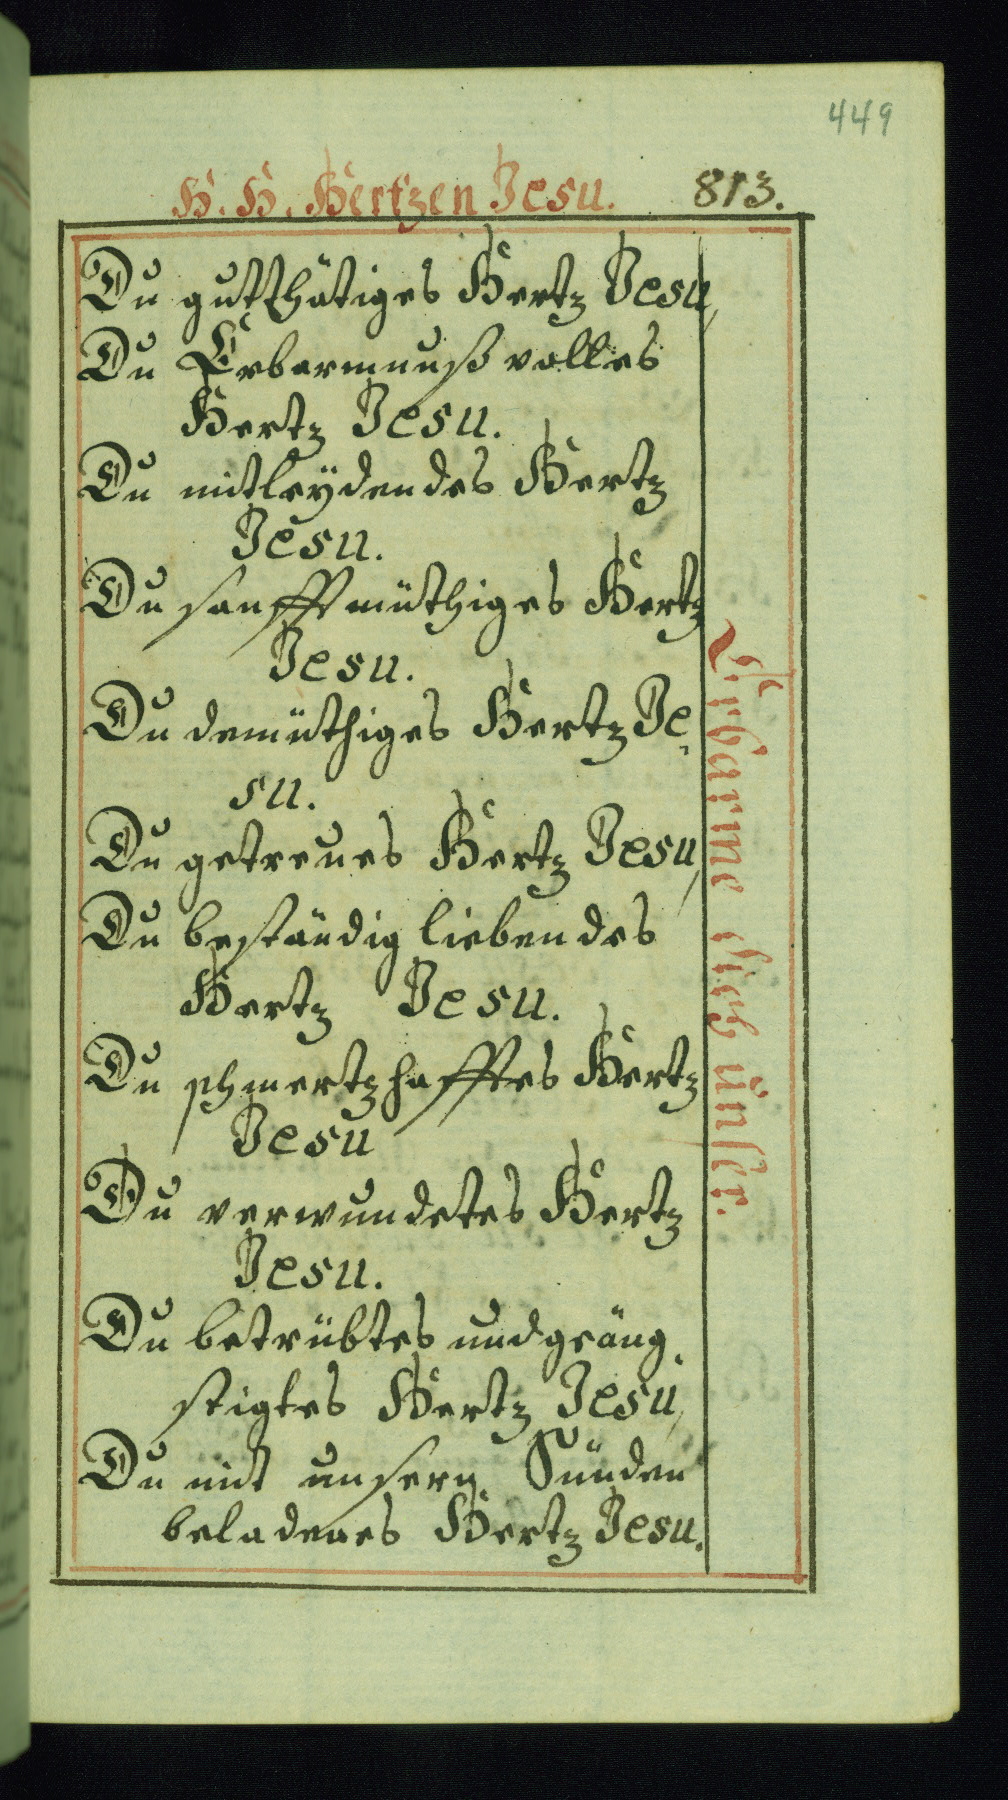 449
H. H. Hertzen Jesu. 813.
Du gutthätiges Hertz Jesu,
Du Erbarmnuß volles
Hertz Jesu.
Du mitleÿdendes Hertz
Jesu.
Du sanfftmüthiges Hertz
Jesu.
Du demüthiges Hertz Je-
su.
Du getreues Hertz Jesu,
Du beständig liebendes
Hertz Jesu.
Du schmertzhafftes Hertz
Jesu
Du verwundetes Hertz
Jesu.
Du betrübtes und geäng-
stigtes Hertz Jesu,
Du mit unsern Sünden
beladenes Hertz Jesu.
Erbarme dich unser.